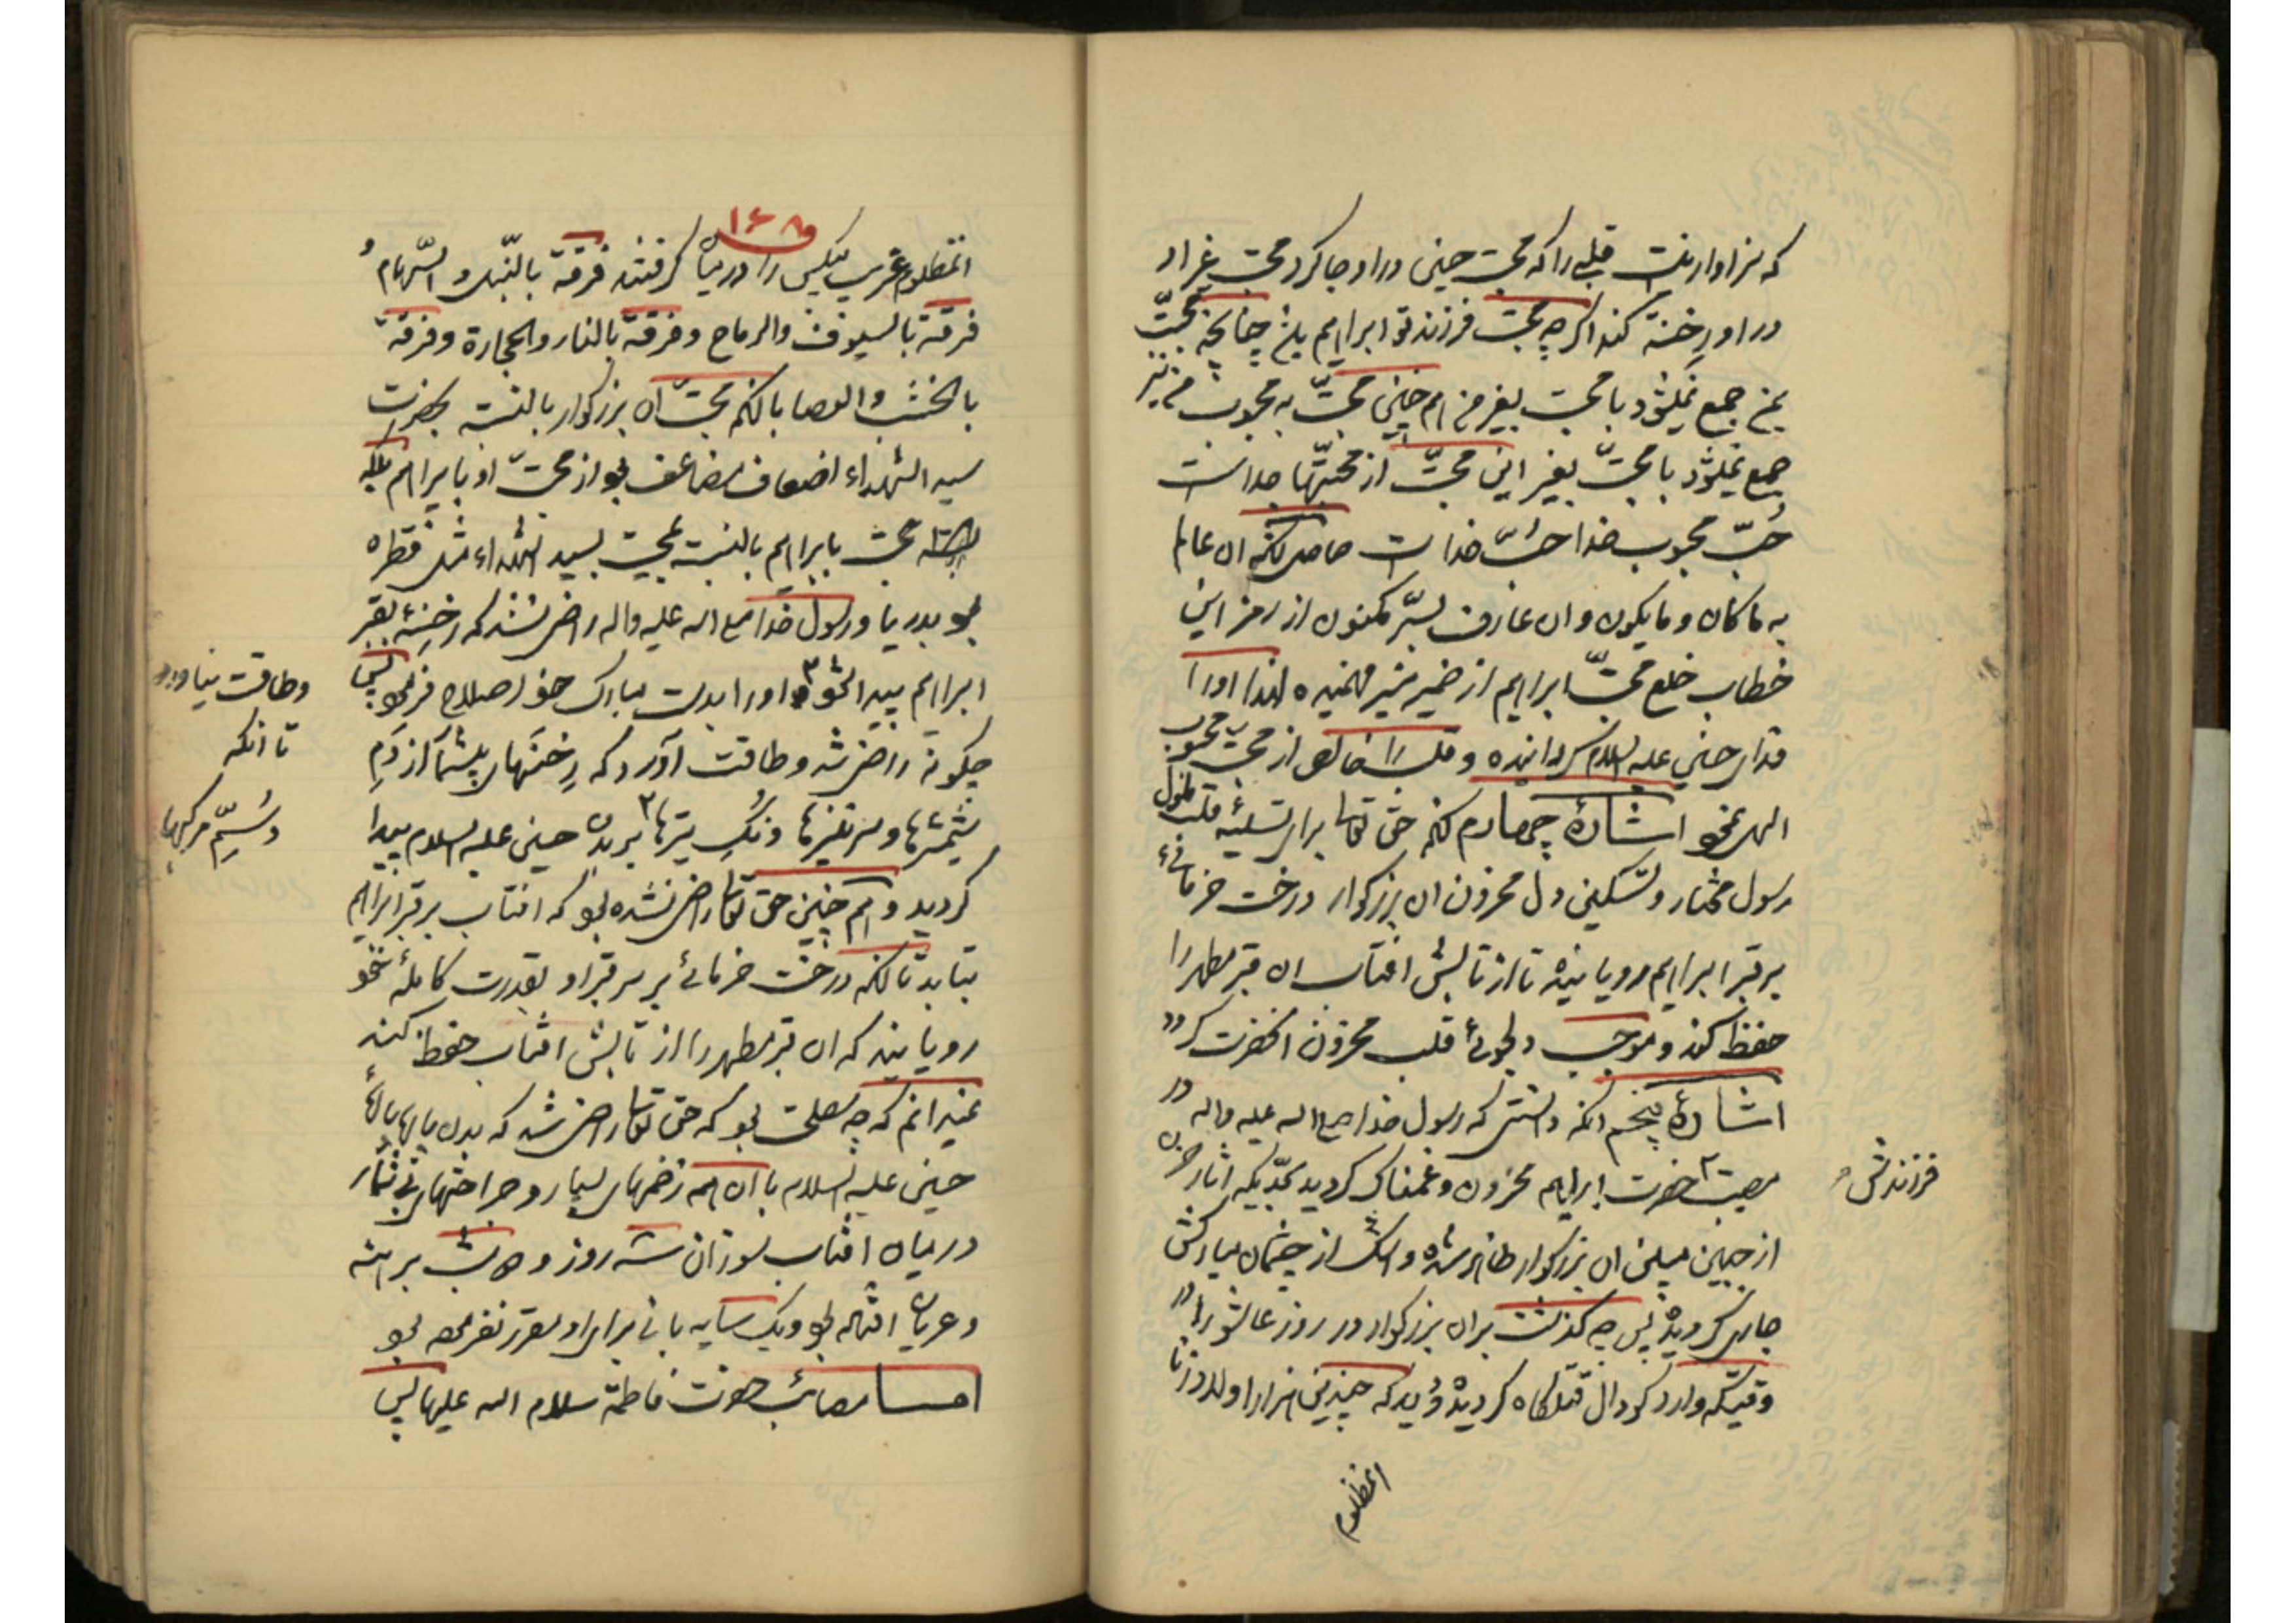 که سزاوار نیست قلبی را که محبت حسین در او جا کرد محبت غیر او
در او رخنه کند اگر چه محبت فرزند تو ابراهیم باشد چنانچه محبت
بمن جمع نمیشود با محبت بغیر من همچنین محبت به محبوب من نیز
جمع نمیشود با محبت بغیر این محبت از محبتها جداست
حُبّ محبوب خدا حبّ خداست حاصل آنکه ان عالم
به ماکان و مایکون و ان عارف بسرّ مکنون از رمز این
خطاب خلع محبت ابراهیم از ضمیر منیر فهمیده لهذا او را
فدای حسین علیه السلام گردانیده و قلب را خالص از محبت محبوب
الهی نمود اشارهٔ چهارم آنکه حق تعالی برای تسلیهٔ قلب ملول
رسول مختار و تسکین دل محزون ان بزرکوار درخت خرمائی
بر قبر ابراهیم رویانیده تا از تابش افتاب ان قبر مطهر را
حفظ کند و موجب دلجوئی قلب محزون انحضرت کردد
اشارهٔ پنجم آنکه دانستی که رسول خدا صلی اله علیه واله در
مصیبت حضرت ابراهیم محزون و غمناک کردید بحدّیکه اثار حزن
فرزندش
از جبین مبین ان بزرکوار ظاهر شده و اشک از چشمان مبارکش
جاری کردید پس چه کذشت بر ان بزرکوار در روز عاشورا در
وقتیکه وارد کودال قتلکاه کردید و دید که چندین هزار اولاد زنا
انمظلوم
۱۶۸
انمظلوم غریب بیکس را در میان کرفتند فرقة بالنبل و السهام و
فرقة بالسیوف والرماح وفرقة بالنار والحجارة وفرقة
بالخشب والعصا با آنکه محبت ان بزرکوار بالنسبة بحضرت
سید الشهداء اضعاف مضاعف بود از محبت او بابراهیم بلکه
محبت بابراهیم بالنسبة بمحبت بسید الشهداء مثل قطره
بود بدریا و رسول خدا صلی اله علیه واله راضی نشد که رخنهٔ بقبر
ابراهیم پیدا شود و او را بدست مبارک خود اصلاح فرمود پس
وطاقت نیاورد
تا آنکه
چکونه راضی شد و طاقت آورد که رخنهای بیشمار از دَمِ
شمشیرها و سر نیزها و نُکِ تیرها بر بدن حسین علیه السلام پیدا
و سُمّ مرکبها
کردید و همچنین حق تعالی راضی نشده بود که افتاب بر قبر ابراهیم
بتابد تا آنکه درخت خرمائی بر سر قبر او بقدرت کاملهٔ خود
رویانید که ان قبر مطهر را از تابش افتاب حفظ کند
نمیدانم که چه مصلحت بود که حق تعالی راضی شد که بدن پاره پارهٔ
حسین علیه السلام با ان همه زخمهای بسیار و جراحتهای بی شمار
در میان افتاب سوزان سه روز و شب برهنه
و عریان افتاده بود و یک سایه بانی برابر او
اما مصائب حضرت فاطمة سلام اله علیها پس